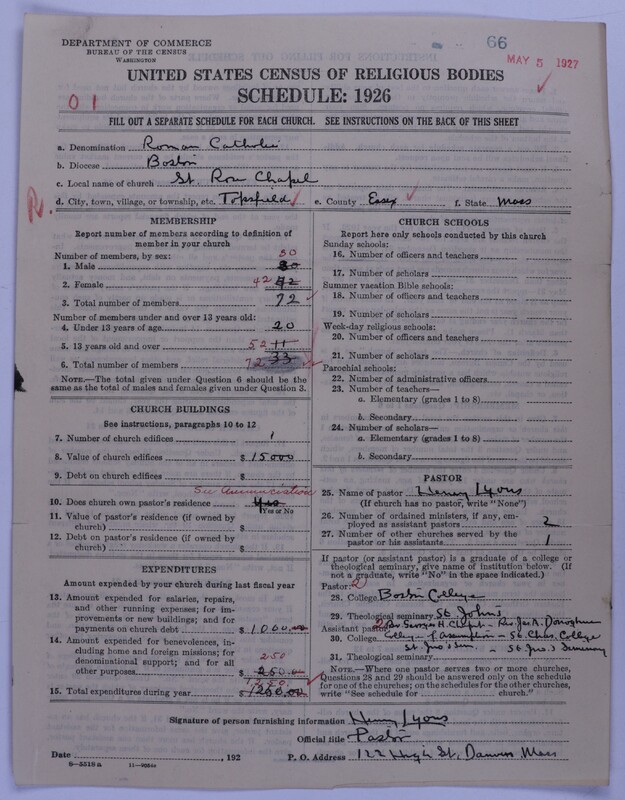 DEPARTMENT OF COMMERCE
BUREAU OF THE CENSUS
WASHINGTON
66
MAY 5 1927
UNITED STATES CENSUS OF RELIGIOUS BODIES
SCHEDULE: 1926
0 1
FILL OUT A SEPARATE SCHEDULE FOR EACH CHURCH. SEE INSTRUCTIONS ON THE BACK OF THIS SHEET
a. Denomination Roman Catholic
b. Diocese Boston
c. Local name of church St. Rose Chapel
d. City, town, village, or township, etc. Topsfield e. County Essex f. State Mass
R.
MEMBERSHIP
Report number of members according to definition of
member in your church
Number of members, by sex: 30
1. Male 30
2. Female 42 42
3. Total number of members 72
Number of members under and over 13 years old:
4. Under 13 years of age 20
5. 13 years old and over 52 11
6. Total number of members 72 33
NOTE.—The total given under Question 6 should be
the same as the total of males and females given under Question 3.
CHURCH BUILDINGS
See instructions, paragraphs 10 to 12
7. Number of church edifices 1
8. Value of church edifices $ 15000
9. Debt on church edifices $
See Annunciation
10. Does church own pastor's residence Yes
Yes or No
11. Value of pastor's residence (if owned by
church) $
12. Debt on pastor's residence (if owned by
church) $
EXPENDITURES
Amount expended by your church during last fiscal year
13. Amount expended for salaries, repairs,
and other running expenses; for im-
provements or new buildings; and for
payments on church debt $ 1000.00
14. Amount expended for benevolences, in-
cluding home and foreign missions; for
denominational support; and for all
250
other purposes $ 250.00
1250
15. Total expenditures during year $ 1250.00
CHURCH SCHOOLS
Report here only schools conducted by this church
Sunday schools:
16. Number of officers and teachers
17. Number of scholars
Summer vacation Bible schools:
18. Number of officers and teachers
19. Number of scholars
Week-day religious schools:
20. Number of officers and teachers
21. Number of scholars
Parochial schools:
22. Number of administrative officers
23. Number of teachers—
a. Elementary (grades 1 to 8)
b. Secondary
24. Number of scholars—
a. Elementary (grades 1 to 8)
b. Secondary
PASTOR
25. Name of pastor Henry Lyons
(If church has no pastor, write "None")
26. Number of ordained ministers, if any, em-
ployed as assistant pastors 2
27. Number of other churches served by the
pastor or his assistants 1
If pastor (or assistant pastor) is a graduate of a college or
theological seminary, give name of institution below. (If
not a graduate, write "No" in the space indicated.)
Pastor: 2
28. College Boston College
29. Theological seminary St. John's
Assistant pastor: Rev George H. - Rev. Jas. A. Donoghue
30. College College of Assumption - St. Chas. College
St. Jno's Sem. - St. Jno's Seminary
31. Theological seminary
NOTE.—Where one pastor serves two or more churches,
Questions 28 and 29 should be answered only on the schedule
for one of the churches; on the schedules for the other churches,
write "See schedule for church."
Signature of person furnishing information Henry Lyons
Official title Pastor
Date , 192 P. O. Address 122 High St, Danvers Mass
8—5519 a